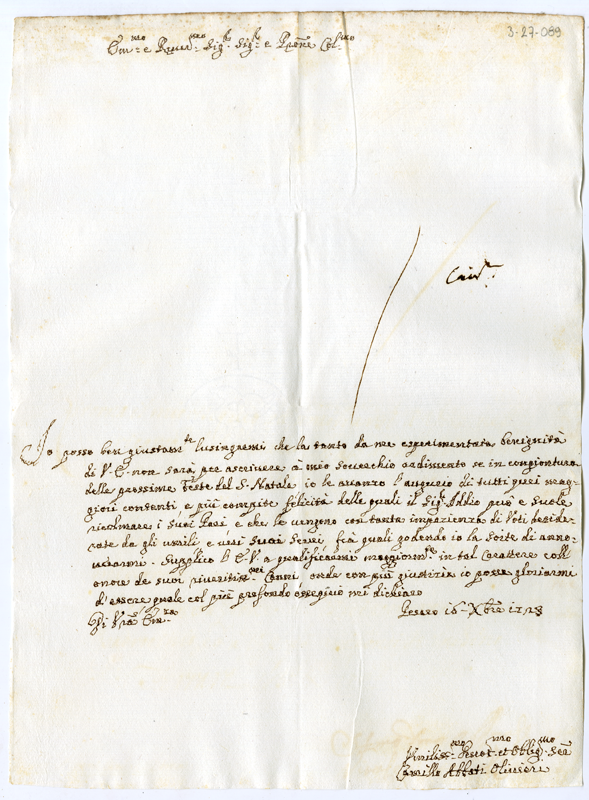 3-27-089
Em.mo e Rever.mo Sig.r Sig.r e Prōne Col.mo
Io posso ben giustam.te lusingarmi che la tanto da me esperimentata benignità
di V. E. non sarà per ascrivere à mio soverchio ardimento se in congiontura
delle prossime Feste del S. Natale io le avanzo l'augurio di tutti quei mag-
giori contenti e più compite felicità delle quali il Sig. Iddio può e suole
ricolmare i suoi Pari e che le vengono con tanta impazienza di Voti deside-
rate da gli umili e veri suoi Servi frà quali godendo io la sorte di anno-
verarmi. Supplico l'E. V. a qualificarmi maggiorm.te in tal Carattere coll
onore de suoi riveritiss.mi Cenni, onde con più giustizia io possa gloriarmi
d'essere quale col più profondo ossequio mi dichiaro
Di Vrā Em.za
Pesaro 16 Xbre 1728
Umiliss.mo Devot.mo et Oblig.mo Ser.
Camillo Abbati Olivieri